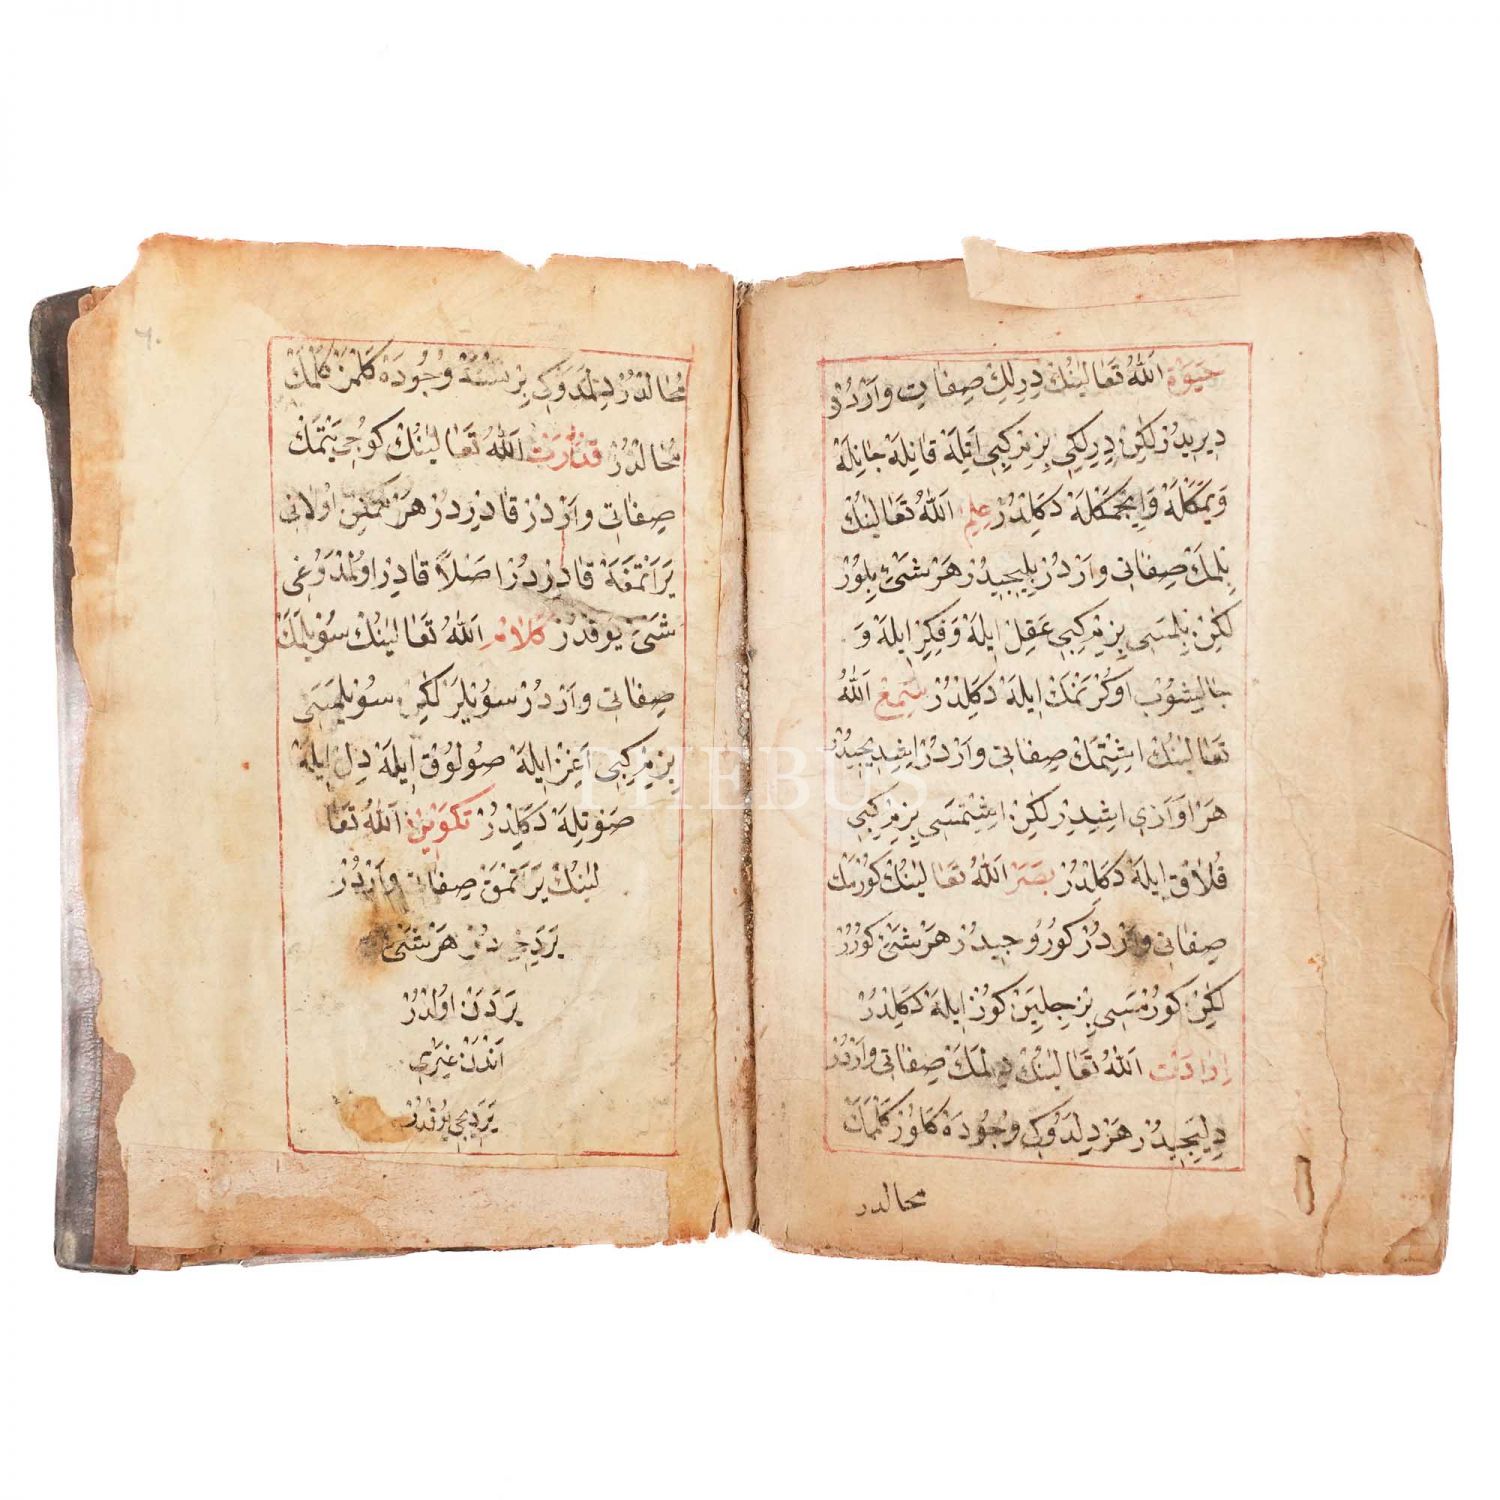 حيوة الله تعالينك دريلك صفاتى واردر
ديريدر لكن ديرلكى بزم كبى اتيله قانيله جانيله
ويمكله وايچمكله دكلدر علم الله تعالينك
بلمك صفاتى واردر بليجيدر هر شئ بلور
لكن بلمسى بزم كبى عقل ايله وفكر ايله و
چاليشوب اوكرنمك ايله دكلدر سمع الله
تعالينك اشتمك صفاتى واردر اشيديجيدر
هر اوازى اشيدر لكن اشتمسى بزم كبى
قلاق ايله دكلدر بصر الله تعالينك كورمك
صفاتى واردر كوروجيدر هر شئ كورر
لكن كورمسى بزجلين كوز ايله دكلدر
ارادت الله تعالينك ديلمك صفاتى واردر
ديليجيدر هر ديلدوكى وجوده كلور كلممك
محالدر
محالدر ديلمدوكى بر شئ وجوده كلمز كلمك
محالدر قدرت الله تعالينك كوجى يتمك
صفاتى واردر قادردر هر ممكن اولانى
يراتمغه قادردر اصلا قادر اولمدوغى
شئ يوقدر كلام الله تعالينك سويلمك
صفاتى واردر سويلر لكن سويلمسى
بزم كبى اغز ايله صولوق ايله دل ايله
صوتله دكلدر تكوين الله تعا
لينك يراتمق صفاتى واردر
يرديجىدر هر شئى
يردن اولدر
اندن غيرى
يرديجى يوقدر
٦٠
PHEBUS